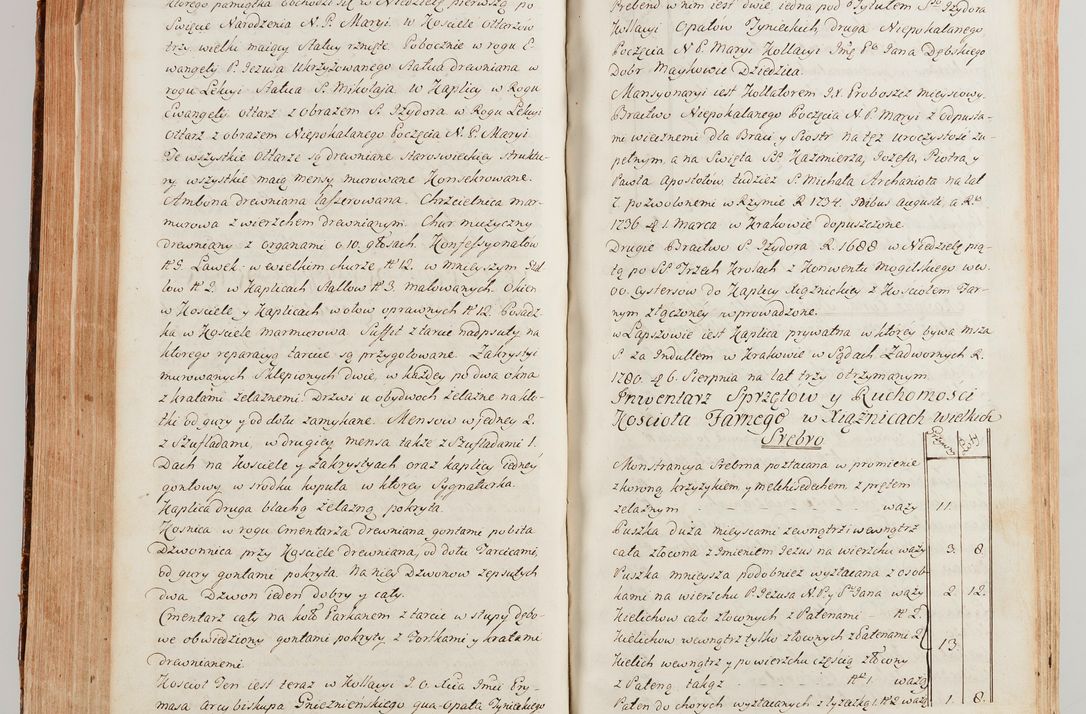 ktorego pamiątka obchodzi się w Niedzielę pierwszą po
Swięcie Narodzenia N. P. Maryi. w Kosciele Ołtarzów
trzy, wielki maiący Statuy rznięte. Pobocznie w rogu E-
wangely P. Jezusa Ukrzyżowanego Statua drewniana w
rogu Lekcyi Statua S. Mikołaja. w Kaplicy w Rogu
Ewangely ołtarz z obrazem S. Jzydora w Rogu Lekcyi
ołtarz z obrazem Niepokalanego Poczęcia N. P. Maryi
Te wszystkie ołtarze są drewniane Staroswieckiey Struktu-
ry wszystkie maią mensy murowane Konsekrowane.
Ambona drewniana laszerowana. Chrzcielnica mar-
murowa z wierzchem drewnianym. Chor muzyczny
drewniany z organami o 10. głosach. Konfessyonałow
№ 3. Ławek w wielkim churze № 12. w mnieyszym Stal-
low № 2. w Kaplicach Stallow № 3. malowanych. Okien
w Kosciele y Kaplicach w ołow oprawnych № 12. Posadz-
ka w Kosciele marmurowa Suffit z tarcic nadpsuty, na
ktorego reparacyą tarcice są przygotowane. Zakrystyi
murowanych Sklepionych dwie, w każdey po dwa okna
z kratami żelaznemi. Drzwi u obydwoch żelazne na kło-
tki od gury y od dołu zamykane. Mensow w jedney 2.
z Szufladami, w drugiey mensa także z Szufladami 1.
Dach na Kosciele y Zakrystyach oraz kaplicy jedney
gontowy w srodku koputa w ktorey Sygnaturka.
Kaplica druga blachą żelazną pokryta.
Kosnica w rogu Cmentarza drewniana gontami pobita
Dzwonnica przy Kosciele drewniana, od dołu Tarcicami,
od gury gontami pokryta. Na niey Dzwonow zepsutych
dwa Dzwon jeden dobry y cały.
Cmentarz cały na koło Parkanem z tarcic w stupy dębo-
we obwiedziony gontami pokryty, z Fortkami y kratami
drewnianemi.
Kosciol Ten iest teraz w Kollacyi J. O. Xcia Jmci Ery-
masa Arcybiskupa Gnieznienskiego qua Opata Tynieckiego
Prebend w nim iest dwie, iedna pod Tytułem Sgo Jzydora
Kollacyi Opatów Tynieckich druga Niepokalanego
Poczęcia N. P. Maryi Kollacyi Jmę Pa Jana Dębskiego
Dobr Maykowic Dziedzica.
Mansyonaryi iest Kollatorem J.X. Proboszcz mieyscowy.
Bractwo Niepokalanego Poczęcia N. P. Maryi z Odpusta-
mi wiecznemi dla Braci y Siostr na tęż uroczystość zu-
pełnym, a na Swięta SS. Kazimierza, Jozefa, Piotra y
Pawła Apostołów, tudzież S. Michała Archanioła na lat
7. pozwolonemi w Rzymie R. 1734. Idibus Augusti, a Rku
1736. d. 1. Marca w Krakowie dopuszczone.
Drugie Bractwo S. Jzydora R. 1688 w Niedzielę pią-
tą po SS. Trzech Krolach z Konwentu Mogilskiego ww.
OO. Cystersow do Kaplicy Xiąznickiey z Kosciołem Far-
nym złączoney wprowadzone.
w Lapszowie iest Kaplica prywatna w ktorey bywa msza
S. za Indultem w Krakowie w Sądach Zadwornych R.
1780. d. 6. Sierpnia na lat trzy otrzymanym.
Inwentarz Sprzętow y Ruchomości
Kościoła Farnego w Xiąznicach wielkich
Srebro
Grzywny
Łoty
Monstrancya Srebrna pozłacana w promienie
z koroną, krzyżykiem y Melchisedechem z prętem
żelaznym - - - - - - waży 11.
Puszka duża mieyscami zewnątrz i wewnątrz
cała złocona z Jmieniem Jezus na wierzchu waży 3 8
Puszka mnieysza podobnież wyzłacana z osob-
kami na wierzchu P. Jezusa N. P. y S. Jana waży 2. 12.
Kielichow cało złoconych z Patenami № 2.
Kielichow wewnątrz tylko złoconych z Patenami 2. 13
Kielich wewnątrz y po wierzchu częścią złocony
z Pateną takąż - - - № 1. ważą
Paten do chorych wyzłacanych z łyzeczką 1. № 2. waży 1. 8.